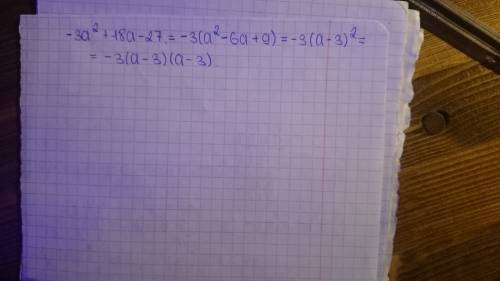 -3a² + 18a - 27 = -3(a² - 6a + 9) = -3(a - 3)² =
= -3(a - 3)(a - 3)